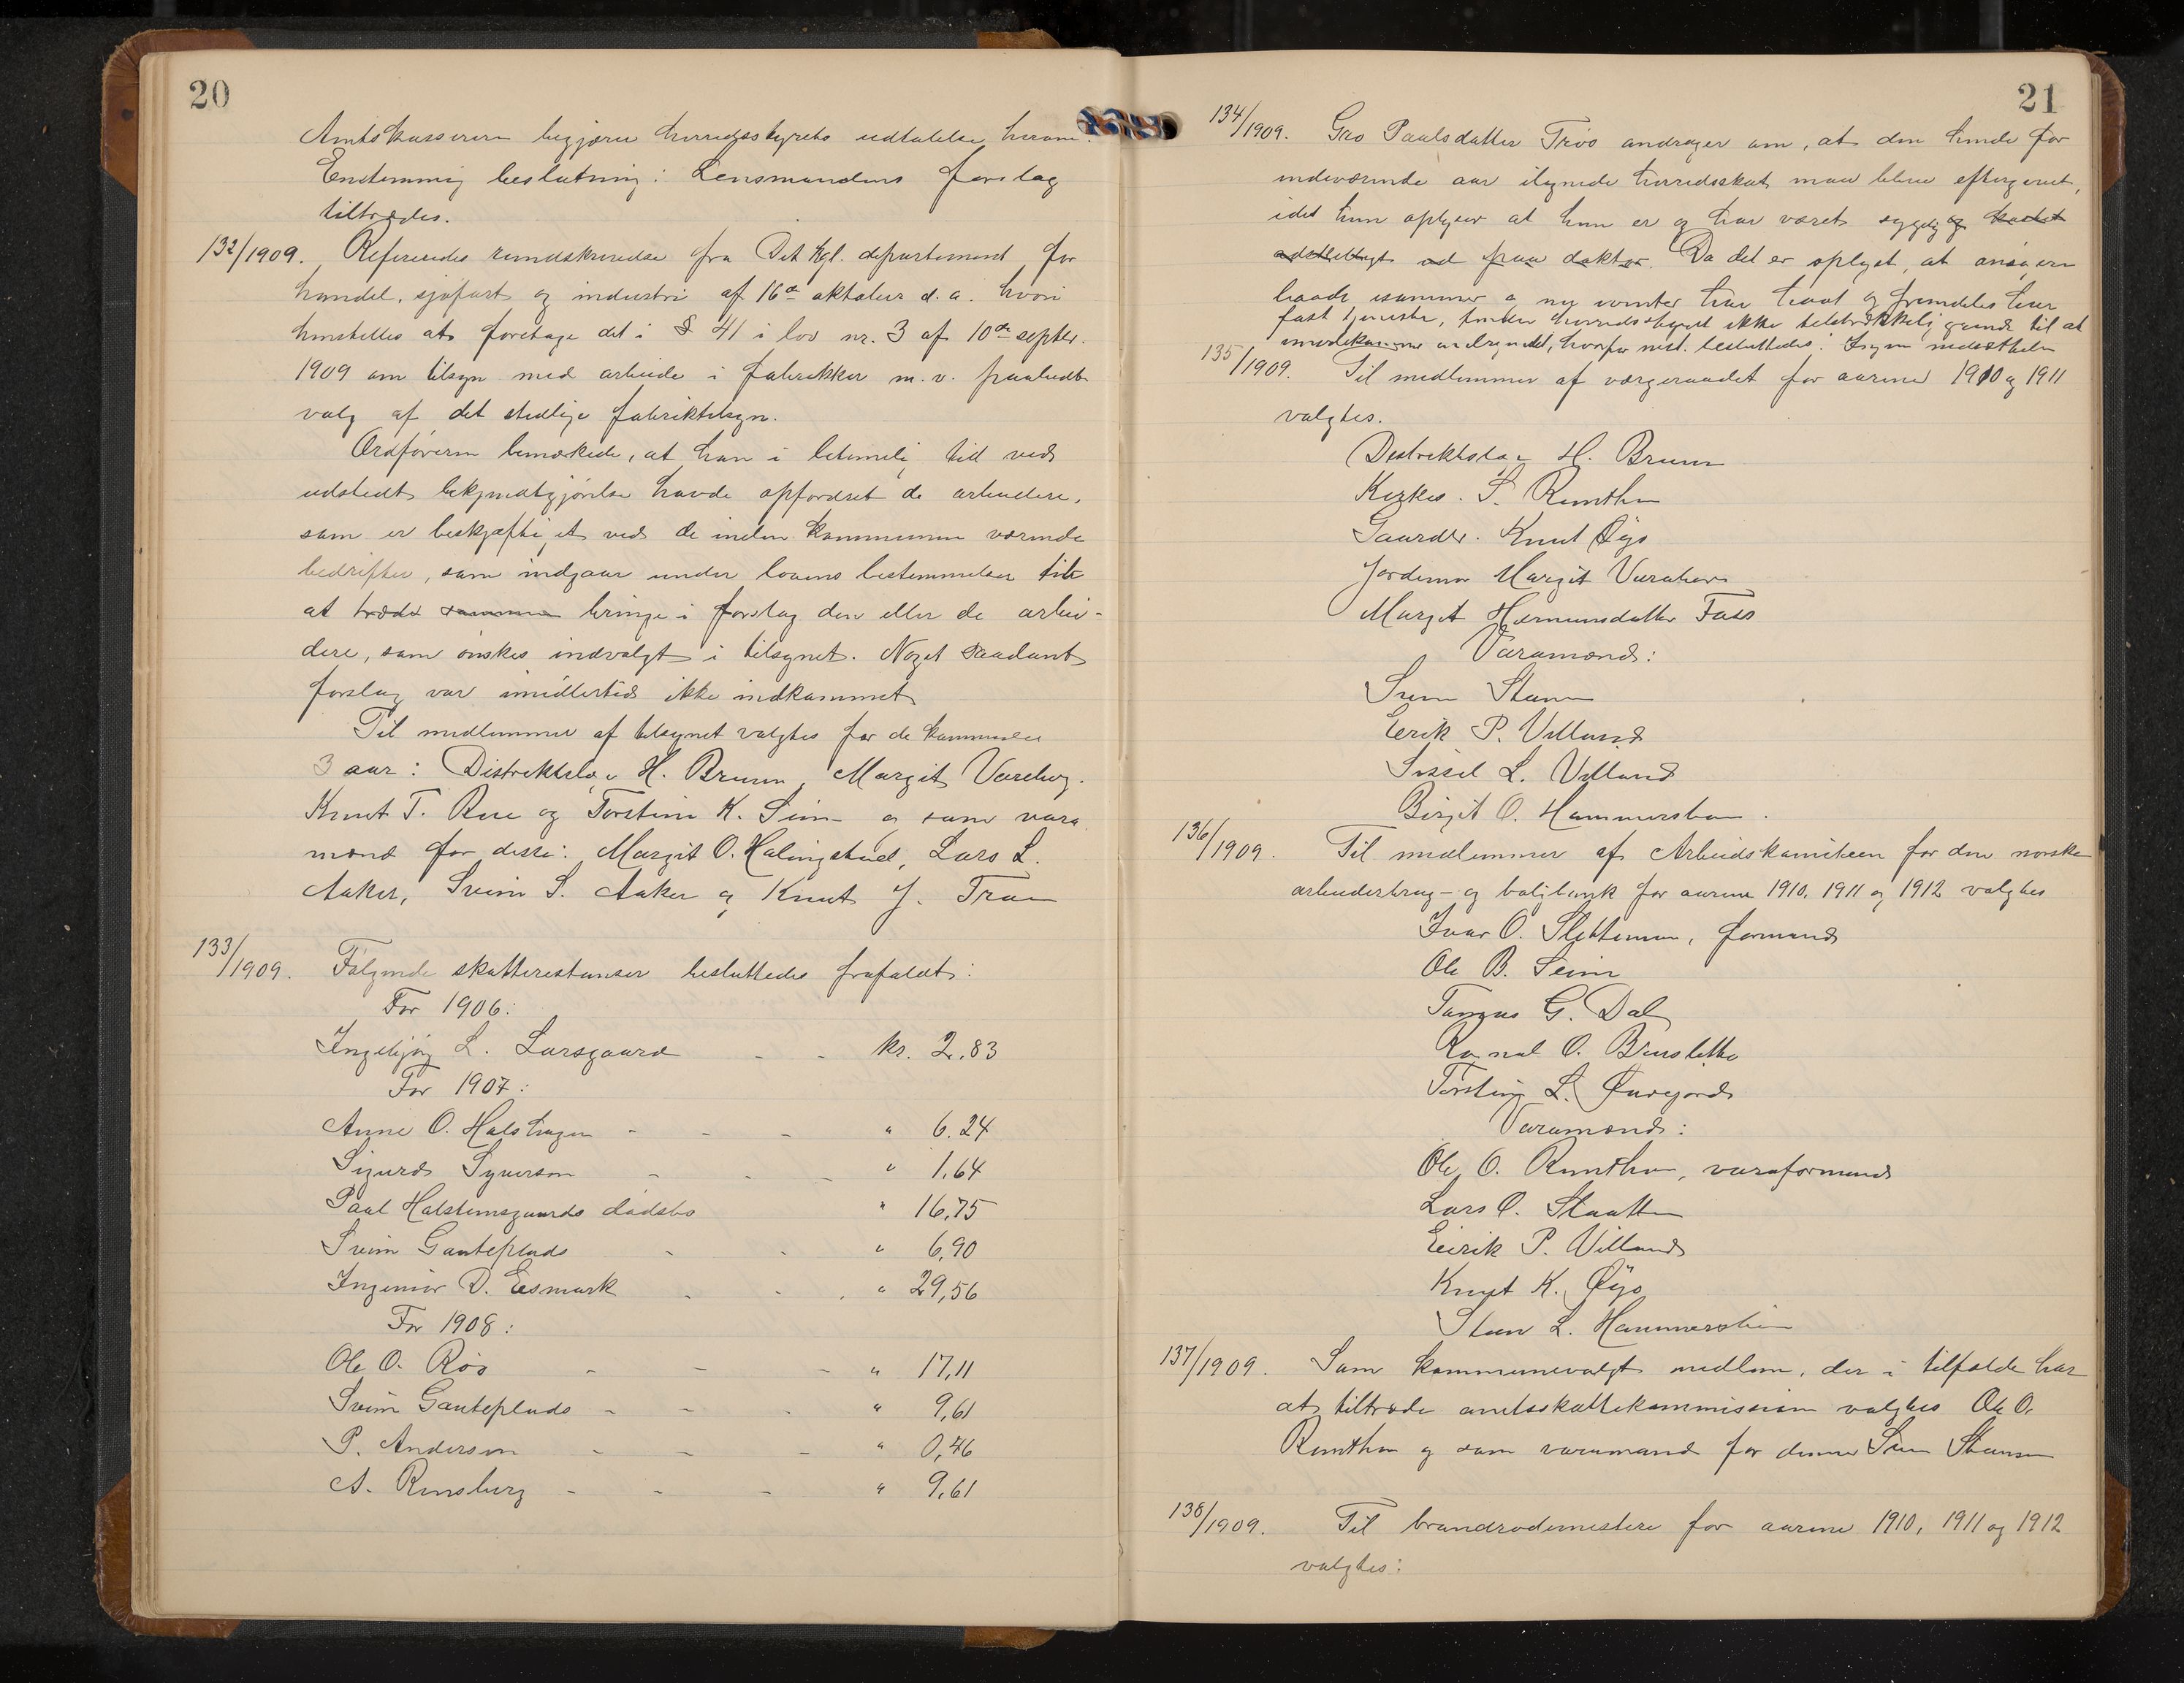 20
Amtskassereren begjærer herredsstyrets udtalelse herom.
Enstemmig beslutning: Lensmandens forslag
tiltrædes.
132/1909. Refereredes rundskrivelse fra Det kgl. departement for
handel, sjøfart og industri af 16de oktober d. a. hvori
henstilles at foretage det i § 41 i lov nr. 3 af 10de septbr.
1909 om tilsyn med arbeide i fabrikker m. v. paabudte
valg af det stedlige fabriktilsyn.
Ordføreren bemærkede, at han i betimelig tid ved
udstedt bekjendtgjørelse havde opfordret de arbeidere,
som er beskjæftiget ved de inden kommunen værende
bedrifter, som indgaar under lovens bestemmelser til
at træde sammen bringe i forslag den eller de arbei-
dere, som ønskes indvalgt i tilsynet. Noget saadant
forslag var imidlertid ikke indkommet
Til medlemmer af tilsynet valgtes for de kommende
3 aar: Distriktslæge H. Bruun, Margit Vareberg.
Knut T. Rue og Torstein K. Seim og som vara
mænd for disse: Margit O. Halingstad, Lars L.
Aaker, Svein S. Aaker og Knut J. Trøo
133/1909. Følgende skatterestanser besluttedes frafaldt:
For 1906:
Ingebjørg L. Larsgaard - - kr. 2.83
For 1907:
Anne O. Halshagen - - - " 6.24
Sigurd Syverson - - - " 1,64
Paal Halstensgaards dødsbo " 16,75
Svein Gauteplads - - " 6,90
Ingeniør D. Eismark - - . " 29,56
For 1908:
Ole O. Røo - - - " 17,11
Svein Gauteplads - - - " 9,61
P. Anderson - - - " 0,46
A. Rensberg - - - " 9,61
21
134/1909. Gro Paulsdatter Trøo andrager om, at den hende for
indeværende aar ilignede herredsskat maa blive eftergivet,
idet hun oplyser at hun er og har været sygelig og havt
ud fraa doktor. Da det er oplyst, at ansøgeren
baade isommer og nu ivinter har havt og fremdeles har
fast tjeneste, finder herredsstyret ikke tilstrækkelig grund til at
imødekomme andragendet, hvorfor besluttedes: Ingen nedsættelse
135/1909. Til medlemmer af værgeraadet for aarene 1910 og 1911
valgtes.
Distriktslæge H. Bruun
Kirkes. S. Runthun
Gaardbr. Knut Øyo
Jordemor Margit Vareberg
Margit Hermunsdatter Foss
Varamænd:
Svein Steensen
Eirik P. Villand
Sissel L. Villand
Birgit O. Hammersbøen.
136/1909. Til medlemmer af Arbeidskomiteen for den norske
arbeiderbrug- og boligbank for aarene 1910, 1911 og 1912 valgtes
Ivar O. Slettemoen, formand
Ole B. Seim
Tomas G. Dal
Ragnal O. Brensletto
Torstein L. Øvregard
Varamænd:
Ole O. Runthun, varaformand
Lars O. Staatten
Eirik P. Villand
Knut K. Øyo
Steen L. Hammersbøen
137/1909. Som kommunevalgt medlem, der i tilfælde har
at tiltræde amtsskattekommissionen valgtes Ole O.
Runthun og som varamand for denne Svein Steensen
138/1909. Til brandrodemestere for aarene 1910, 1911 og 1912
valgtes: